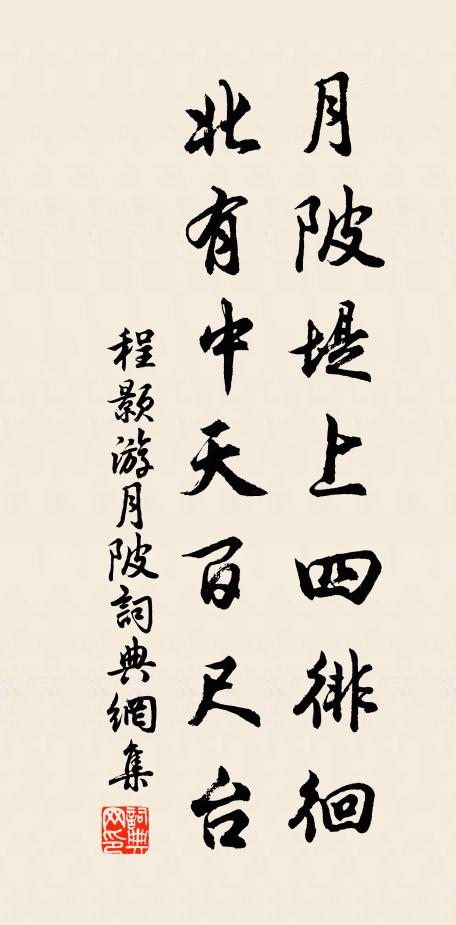 月陂堤上四徘徊
北有中天百尺台
程顥游月陂詞典網集
詞典
网印